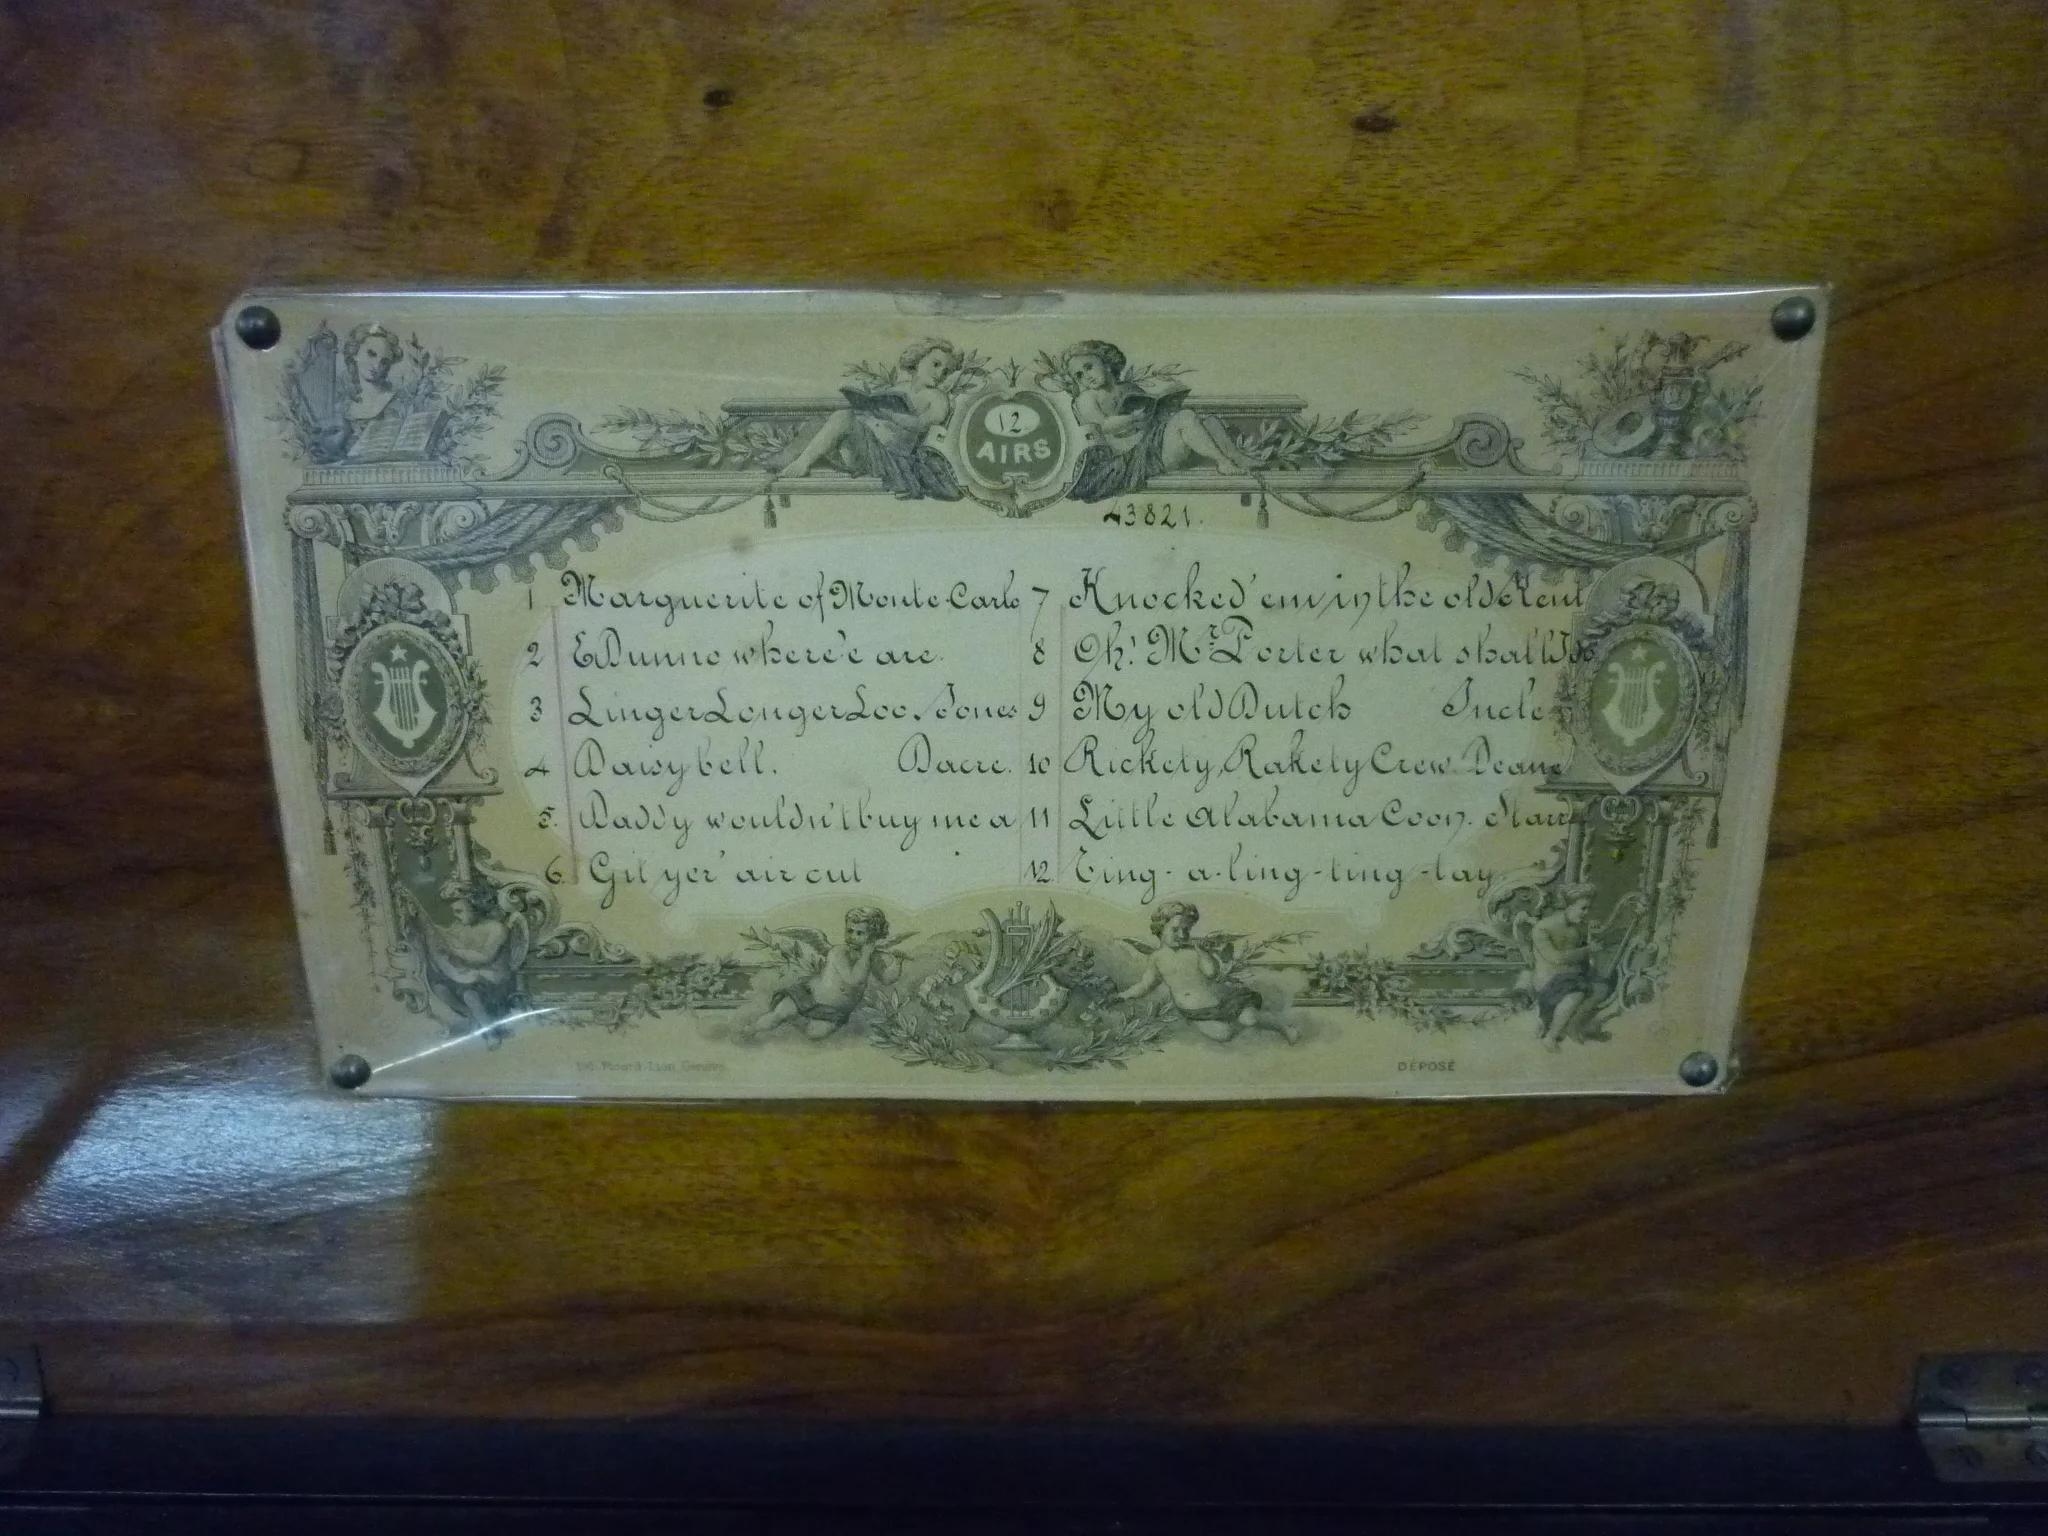 12
AIRS
43821.
1 Marguerite of Monte-Carlo
2 E Dunno where'e are.
3 Linger Longer Loo. Jones
4 Daisy bell. Dacre.
5. Daddy wouldn't buy me a
6. Git yer' air cut
7 Knocked'em in the old Kent
8 Oh! Mr Porter what shall I do
9 My old Dutch Incle
10 Rickety, Rakety Crew. Deane
11 Little Alabama Coon. Starr
12. Ting-a-ling-ting-tay
Genève
DÉPOSÉ